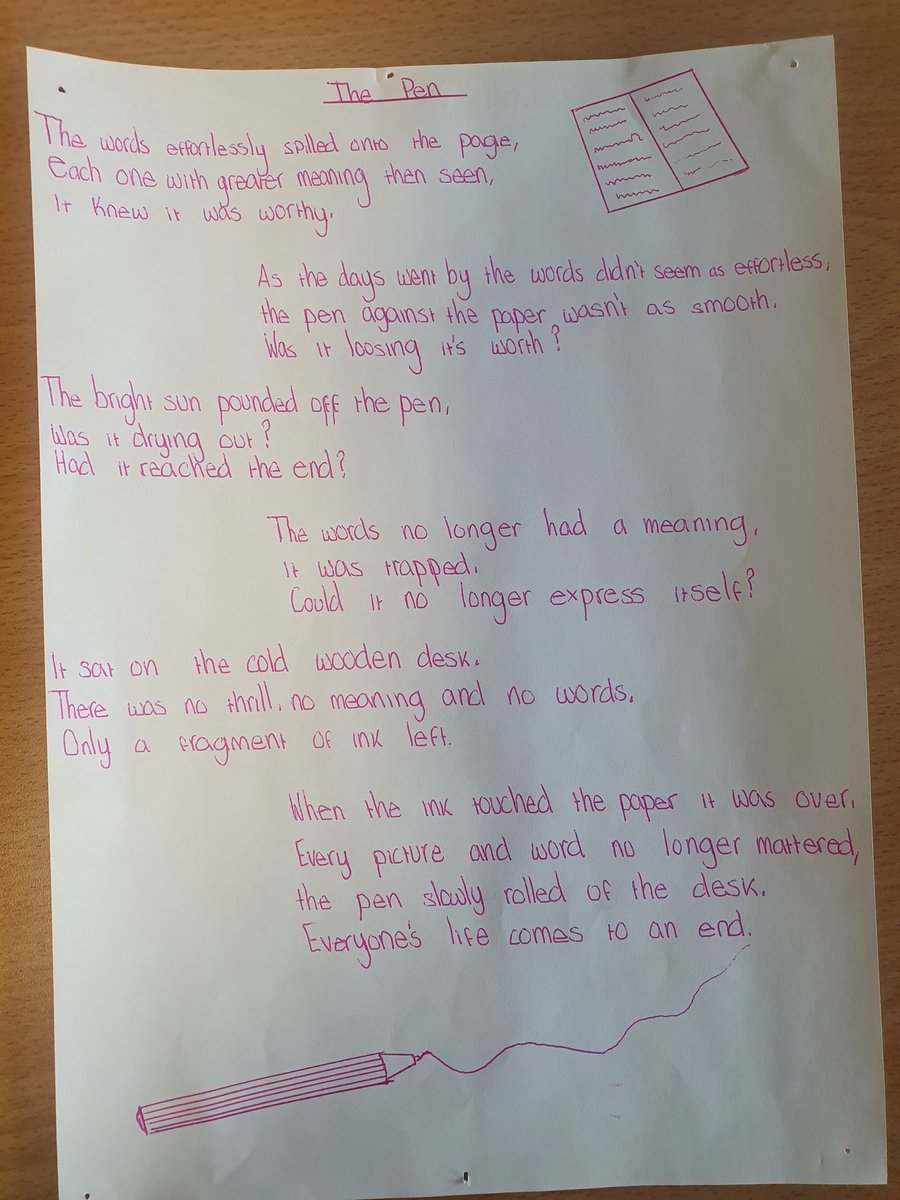 The Pen
The words effortlessly spilled onto the page,
Each one with greater meaning then seen,
It knew it was worthy.
As the days went by the words didn't seem as effortless,
the pen against the paper wasn't as smooth.
Was it loosing it's worth?
The bright sun pounded off the pen,
Was it drying out?
Had it reached the end?
The words no longer had a meaning,
it was trapped.
Could it no longer express itself?
It sat on the cold wooden desk.
There was no thrill, no meaning and no words.
Only a fragment of ink left.
When the ink touched the paper it was over,
Every picture and word no longer mattered,
the pen slowly rolled of the desk.
Everyone's life comes to an end.